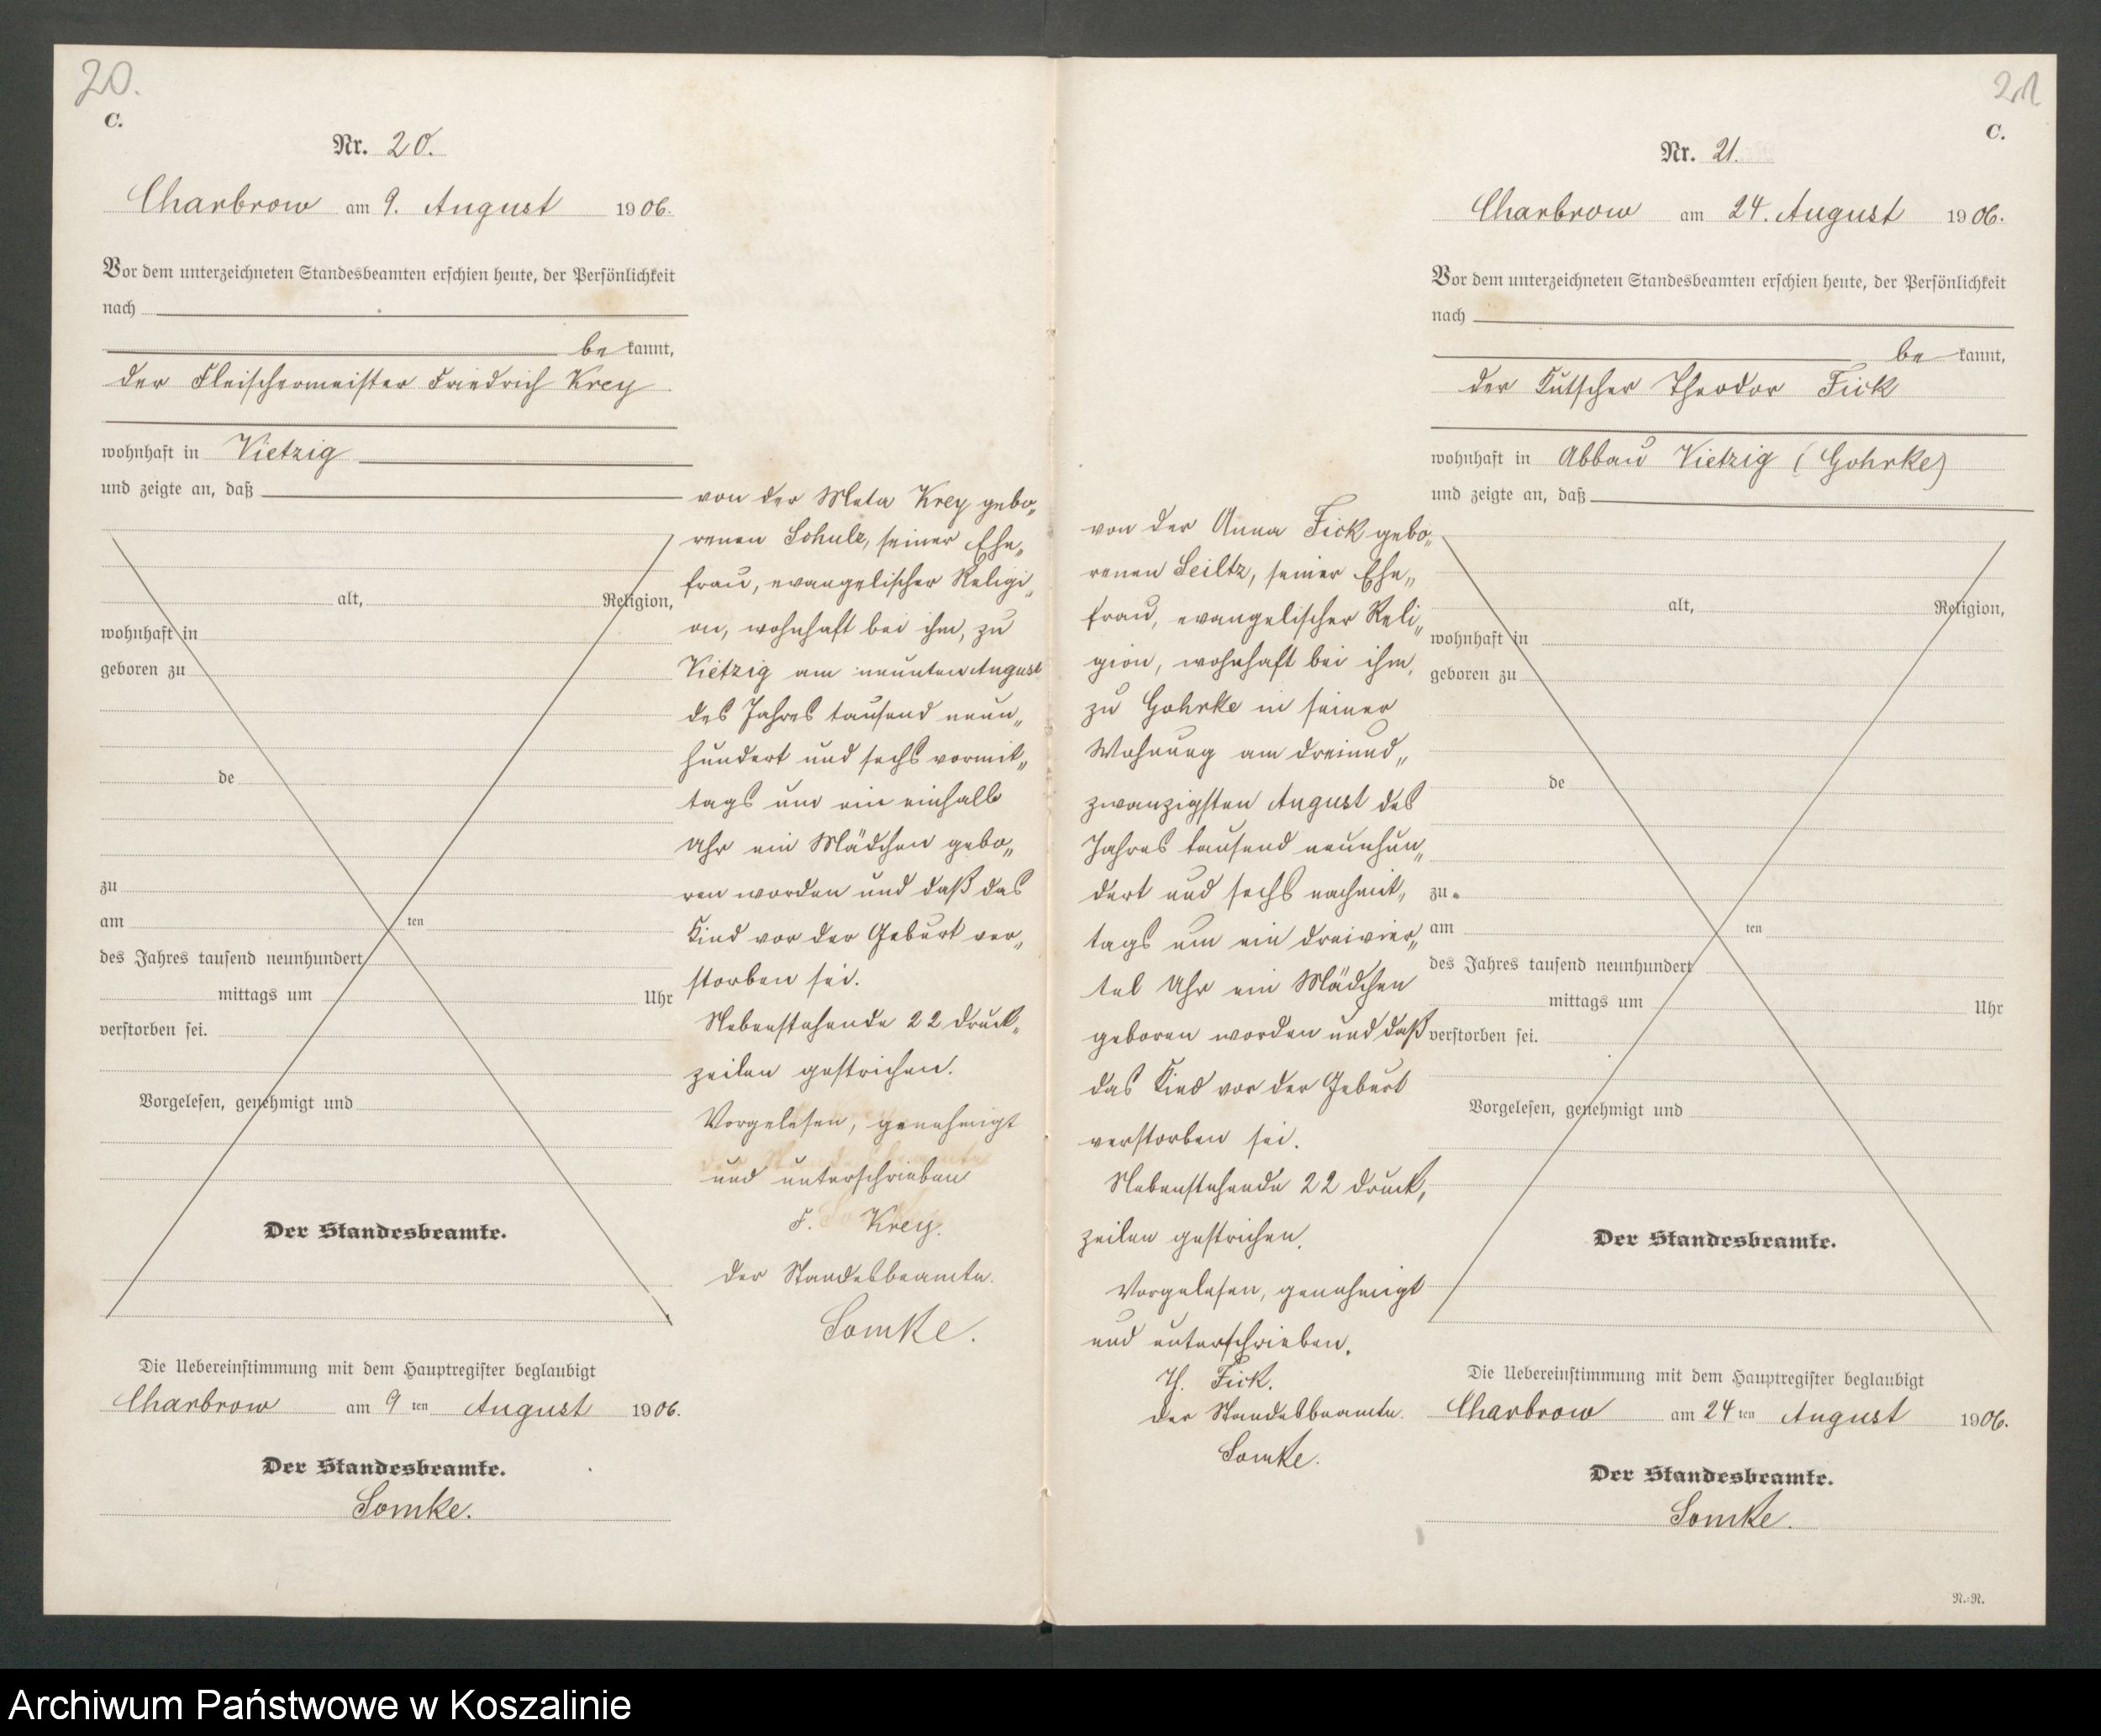 20.
C.
Nr. 20.
Charbrow am 9. August 1906.
Vor dem unterzeichneten Standesbeamten erschien heute, der Persönlichkeit
nach
be kannt,
der Fleischermeister Friedrich Krey
wohnhaft in Vietzig
und zeigte an, daß
alt, Religion,
wohnhaft in
geboren zu
de
zu
am ten
des Jahres tausend neunhundert
mittags um Uhr
verstorben sei.
Vorgelesen, genehmigt und
Der Standesbeamte.
von der Meta Krey gebo„
renen Schulz, seiner Ehe„
frau, evangelischer Religi„
on, wohnhaft bei ihm, zu
Vietzig am neunten August
des Jahres tausend neun„
hundert und sechs vormit„
tags um ein einhalb
Uhr ein Mädchen gebo„
ren worden und daß das
Kind vor der Geburt ver„
storben sei.
Nebenstehende 22 Druck„
zeilen gestrichen.
Vorgelesen, genehmigt
und unterschrieben
F. Krey.
Der Standesbeamte.
Somke.
Die Uebereinstimmung mit dem Hauptregister beglaubigt
Charbrow am 9 ten August 1906.
Der Standesbeamte.
Somke.
21
C.
Nr. 21.
Charbrow am 24. August 1906.
Vor dem unterzeichneten Standesbeamten erschien heute, der Persönlichkeit
nach
be kannt,
der Kutscher Theodor Fick
wohnhaft in Abbau Vietzig (Gohrke)
und zeigte an, daß
alt, Religion,
wohnhaft in
geboren zu
de
zu
am ten
des Jahres tausend neunhundert
mittags um Uhr
verstorben sei.
Vorgelesen, genehmigt und
Der Standesbeamte.
von der Anna Fick gebo„
renen Seiltz, seiner Ehe„
frau, evangelischer Reli„
gion, wohnhaft bei ihm,
zu Gohrke in seiner
Wohnung am dreiund„
zwanzigsten August des
Jahres tausend neunhun„
dert und sechs nachmit„
tags um ein dreivier„
tel Uhr ein Mädchen
geboren worden und daß
das Kind vor der Geburt
verstorben sei.
Nebenstehende 22 Druck„
zeilen gestrichen.
Vorgelesen, genehmigt
und unterschrieben.
Th. Fick.
Der Standesbeamte.
Somke.
Die Uebereinstimmung mit dem Hauptregister beglaubigt
Charbrow am 24 ten August 1906.
Der Standesbeamte.
Somke.
N.-N.
Archiwum Państwowe w Koszalinie